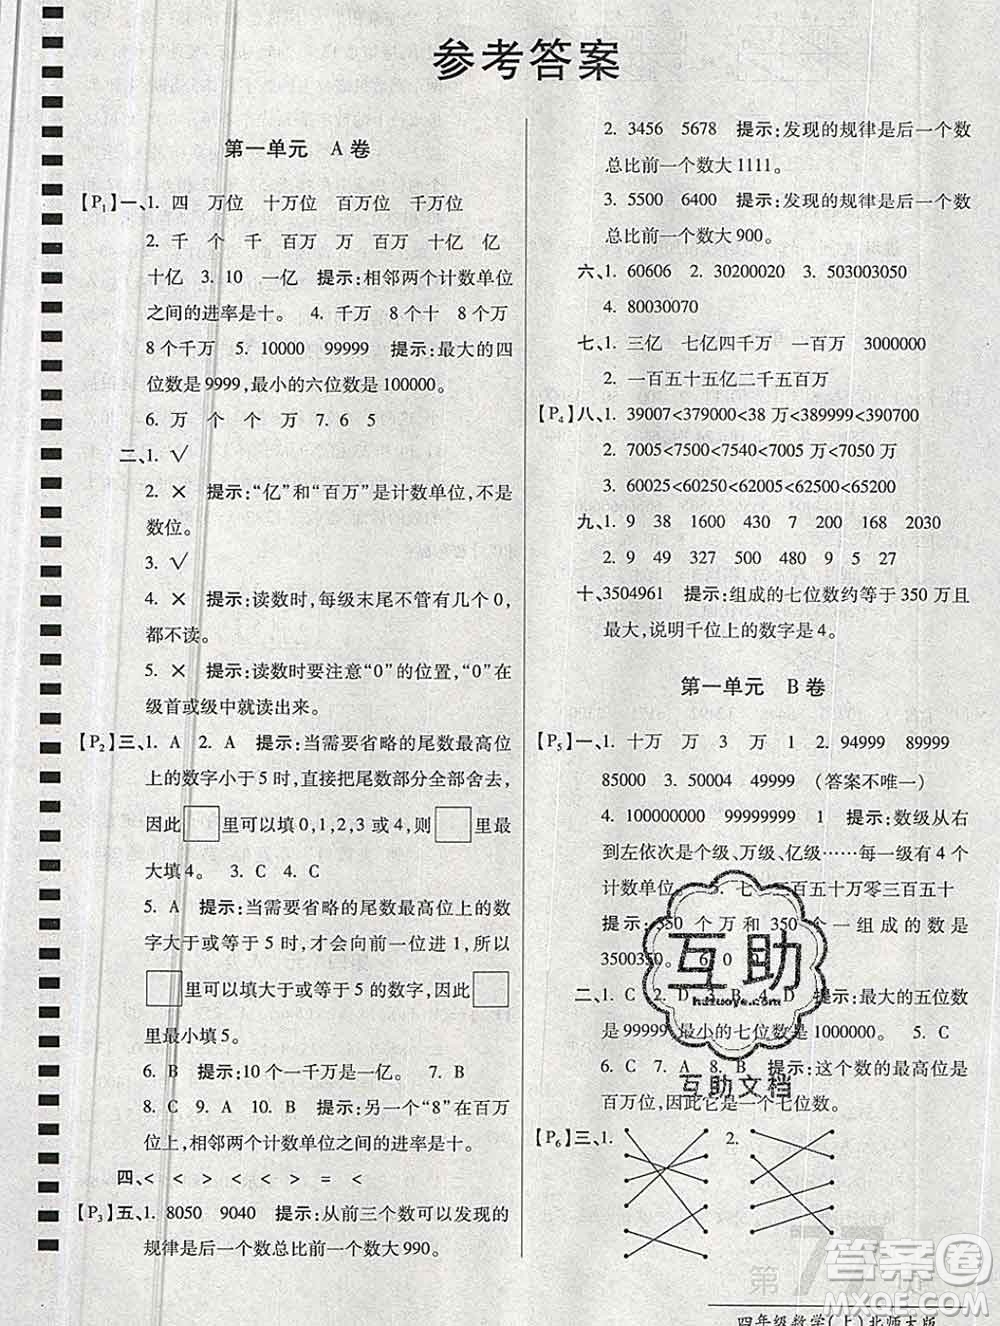 参考答案
第一单元 A卷
【P1】一、1. 四 万位 十万位 百万位 千万位
2. 千 个 千 百万 万 百万 十亿 亿
十亿 3. 10 一亿 提示:相邻两个计数单位
之间的进率是十。 4. 千万 8个十 8个万
8个千万 5. 10000 99999 提示:最大的四
位数是9999,最小的六位数是100000。
6. 万 个 个 万 7. 6 5
二、1. √
2. × 提示:“亿”和“百万”是计数单位,不是
数位。
3. √
4. × 提示:读数时,每级末尾不管有几个0,
都不读。
5. × 提示:读数时要注意“0”的位置,“0”在
级首或级中就读出来。
【P2】三、1. A 2. A 提示:当需要省略的尾数最高位
上的数字小于5时,直接把尾数部分全部舍去,
因此□里可以填0,1,2,3或4,则□里最
大填4。 3. C 4. C
5. A 提示:当需要省略的尾数最高位上的数
字大于或等于5时,要向前一位进1,所以
□里可以填大于或等于5的数字,因此□
里最小填5。
6. B 提示:10个一千万是一亿。 7. B
8. C 9. A 10. C 提示:另一个“8”在百万
位上,相邻两个计数单位之间的进率是十。
四、< < > < > > = <
【P3】五、1. 8050 9040 提示:从前三个数可以发现的
规律是后一个数总比前一个数大990。
2. 3456 5678 提示:发现的规律是后一个数
总比前一个数大1111。
3. 5500 6400 提示:发现的规律是后一个数
总比前一个数大900。
六、1. 60606 2. 30200020 3. 503003050
4. 80030070
七、1. 三亿 七亿四千万 一百万 3000000
2. 一百五十五亿二千五百万
【P4】八、1. 39007<379000<38万<389999<390700
2. 7005<7500<7005万<7050万<7500万
3. 60025<60250<62005<62050<62500
九、1. 9 38 1600 430 7 200 168 2030
2. 9 49 327 500 480 9 5 27
十、3504961 提示:组成的七位数约等于350万且
最大,说明千位上的数字是4。
第一单元 B卷
【P5】一、1. 十万 万 3 万 1 2. 94999 89999
85000 3. 50000 49999 (答案不唯一)
4. 100000000 99999999 1 提示:数级从右
到左依次是个级、万级、亿级……每一级有4个
计数单位。 5. 七 三百五十万零三百五十
提示:350个万和350个一组成的数是
3500350。 6. 0
二、1. C 2. D 3. B 4. D 提示:最大的五位数
是99999,最小的七位数是1000000。 5. C
6. C 7. A 8. B 提示:这个数的最高位是
百万位,因此它是一个七位数。
【P6】三、1. 2.
互助
huzuoye.com
互助文档
第77页
答案圈
MXQE.COM
四年级数学(上)北师大版